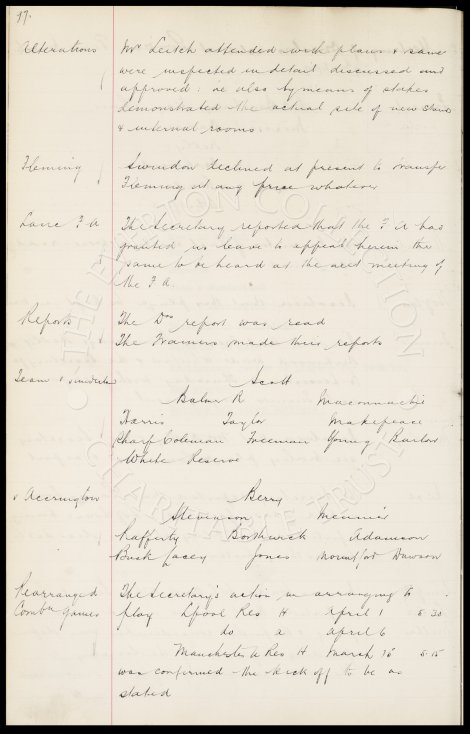 17.
Alterations Mr Leitch attended with plans & same
were inspected in detail discussed and
approved: he also by means of stakes
demonstrated the actual site of new Stand
& internal rooms
Fleming Swindon declined at present to transfer
Fleming at any price whatever
Lancs F A The Secretary reported that the F A has
granted us leave to appeal herein the
same to be heard at the next meeting of
the F A.
Reports The Drs report was read
The Trainers made their reports
Team v Sunderland Scott
Balmer R Maconnachie
Harris Taylor Makepeace
Sharp Coleman Freeman Young Barlow
White Reserve
v Accrington Berry
Stevenson Meunier
Rafferty Borthwick Adamson
Buck Lacey Jones Mountfort Dawson
Rearranged The Secretary's action in arranging to
Combn Games play Lpool Res H April 1 5-30
do a April 6
Manchester U Res H March 16 5-15
was confirmed - the kick off to be as
stated
© THE EVERTON COLLECTION
CHARITABLE TRUST